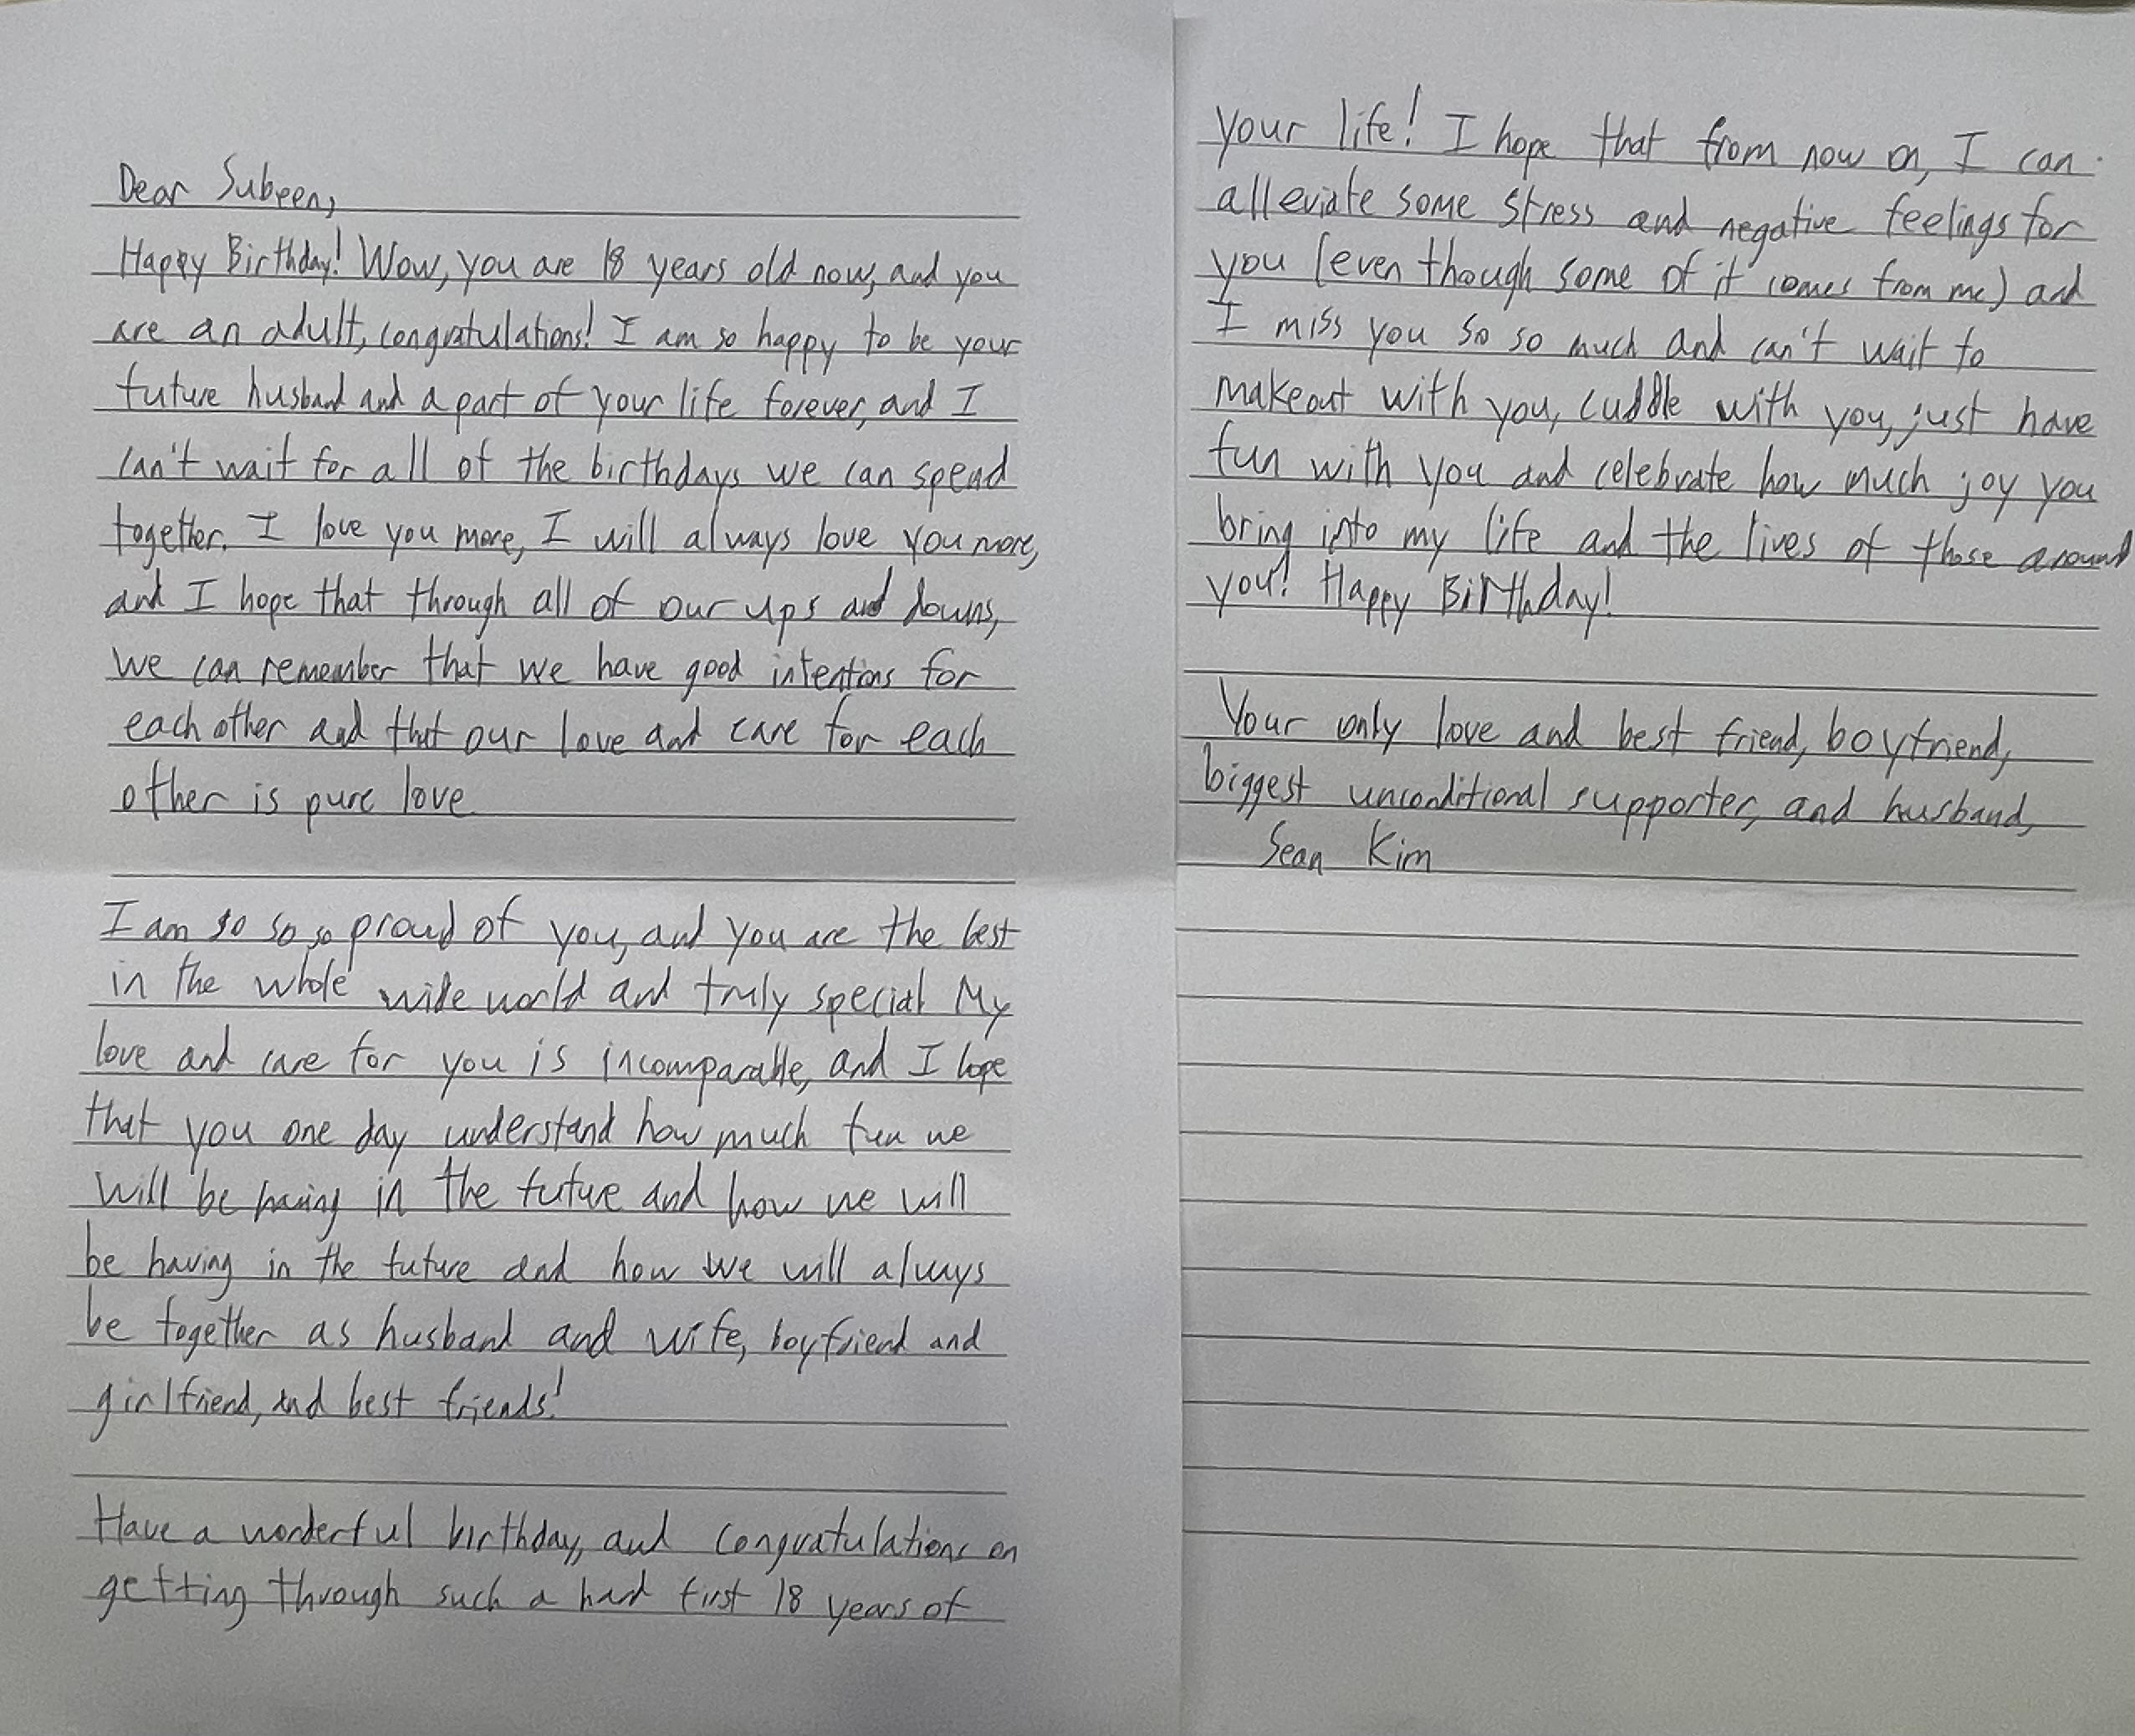 Dear Subeen,
Happy Birthday! Wow, you are 18 years old now, and you
are an adult, congratulations! I am so happy to be your
future husband and a part of your life forever, and I
can't wait for all of the birthdays we can spend
together. I love you more, I will always love you more,
and I hope that through all of our ups and downs,
we can remember that we have good intentions for
each other and that our love and care for each
other is pure love
I am so so so proud of you, and you are the best
in the whole wide world and truly special My
love and care for you is incomparable, and I hope
that you one day understand how much fun we
will be having in the future and how we will
be having in the future and how we will always
be together as husband and wife, boyfriend and
girlfriend, and best friends!
Have a wonderful birthday, and congratulations on
getting through such a hard first 18 years of
your life! I hope that from now on, I can
alleviate some stress and negative feelings for
you (even though some of it comes from me) and
I miss you so so much and can't wait to
makeout with you, cuddle with you, just have
fun with you and celebrate how much joy you
bring into my life and the lives of those around
you! Happy Birthday!
Your only love and best friend, boyfriend,
biggest unconditional supporter, and husband,
Sean Kim